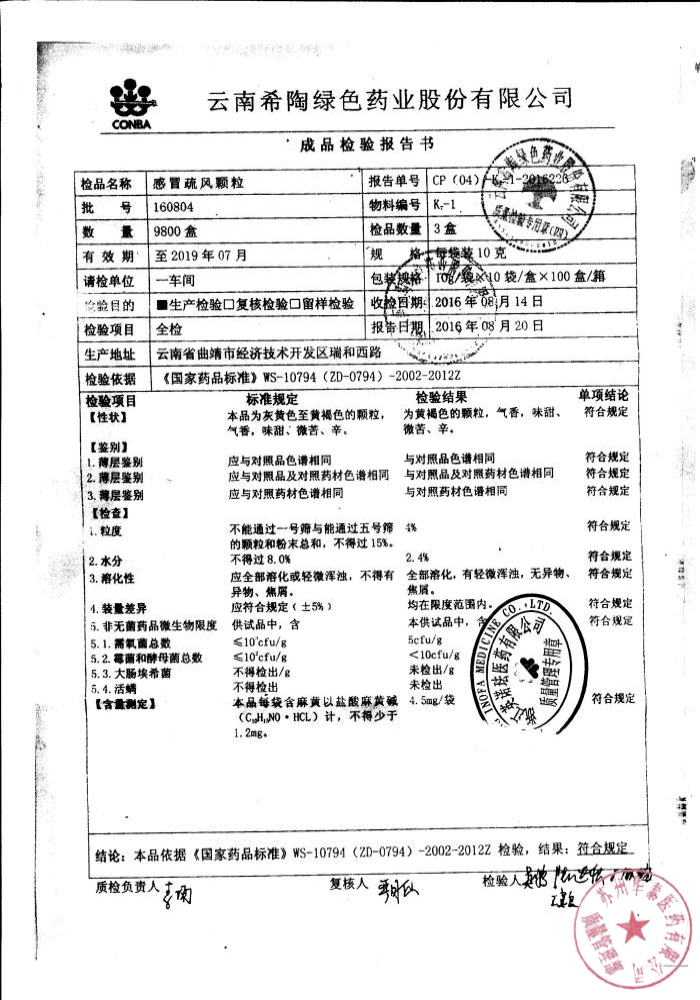 CONBA
云南希陶绿色药业股份有限公司
成品检验报告书
检品名称 感冒疏风颗粒 报告单号 CP（04）K-1-2016226
批号 160804 物料编号 K-1
数量 9800盒 检品数量 3盒
有效期 至2019年07月 规格 每袋装10克
请检单位 一车间 包装规格 10g/袋×10袋/盒×100盒/箱
检验目的 ■生产检验□复核检验□留样检验 收检日期 2016年08月14日
检验项目 全检 报告日期 2016年08月20日
生产地址 云南省曲靖市经济技术开发区瑞和西路
检验依据 《国家药品标准》WS-10794（ZD-0794）-2002-2012Z
检验项目 标准规定 检验结果 单项结论
【性状】 本品为灰黄色至黄褐色的颗粒， 为黄褐色的颗粒，气香，味甜、 符合规定
气香，味甜、微苦、辛。 微苦、辛。
【鉴别】
1.薄层鉴别 应与对照品色谱相同 与对照品色谱相同 符合规定
2.薄层鉴别 应与对照品及对照药材色谱相同 与对照品及对照药材色谱相同 符合规定
3.薄层鉴别 应与对照药材色谱相同 与对照药材色谱相同 符合规定
【检查】
1.粒度 不能通过一号筛与能通过五号筛 4% 符合规定
的颗粒和粉末总和，不得过15%。
2.水分 不得过8.0% 2.4% 符合规定
3.溶化性 应全部溶化或轻微浑浊，不得有 全部溶化，有轻微浑浊，无异物、 符合规定
异物、焦屑。 焦屑。
4.装量差异 应符合规定（±5%） 均在限度范围内。 符合规定
5.非无菌药品微生物限度 供试品中，含 本供试品中，含 符合规定
5.1.需氧菌总数 ≤10³cfu/g 5cfu/g
5.2.霉菌和酵母菌总数 ≤10²cfu/g <10cfu/g
5.3.大肠埃希菌 不得检出/g 未检出/g
5.4.活螨 不得检出 未检出
【含量测定】 本品每袋含麻黄以盐酸麻黄碱 4.5mg/袋 符合规定
（C₁₀H₁₅NO·HCL）计，不得少于
1.2mg。
INOFA MEDICINE CO.,LTD.
英诺珐医药有限公司
质量管理专用章
结论：本品依据《国家药品标准》WS-10794（ZD-0794）-2002-2012Z 检验，结果：符合规定
质检负责人 复核人 检验人
苏州华泰医药有限公司
质量管理章
质量检验专用章(四)